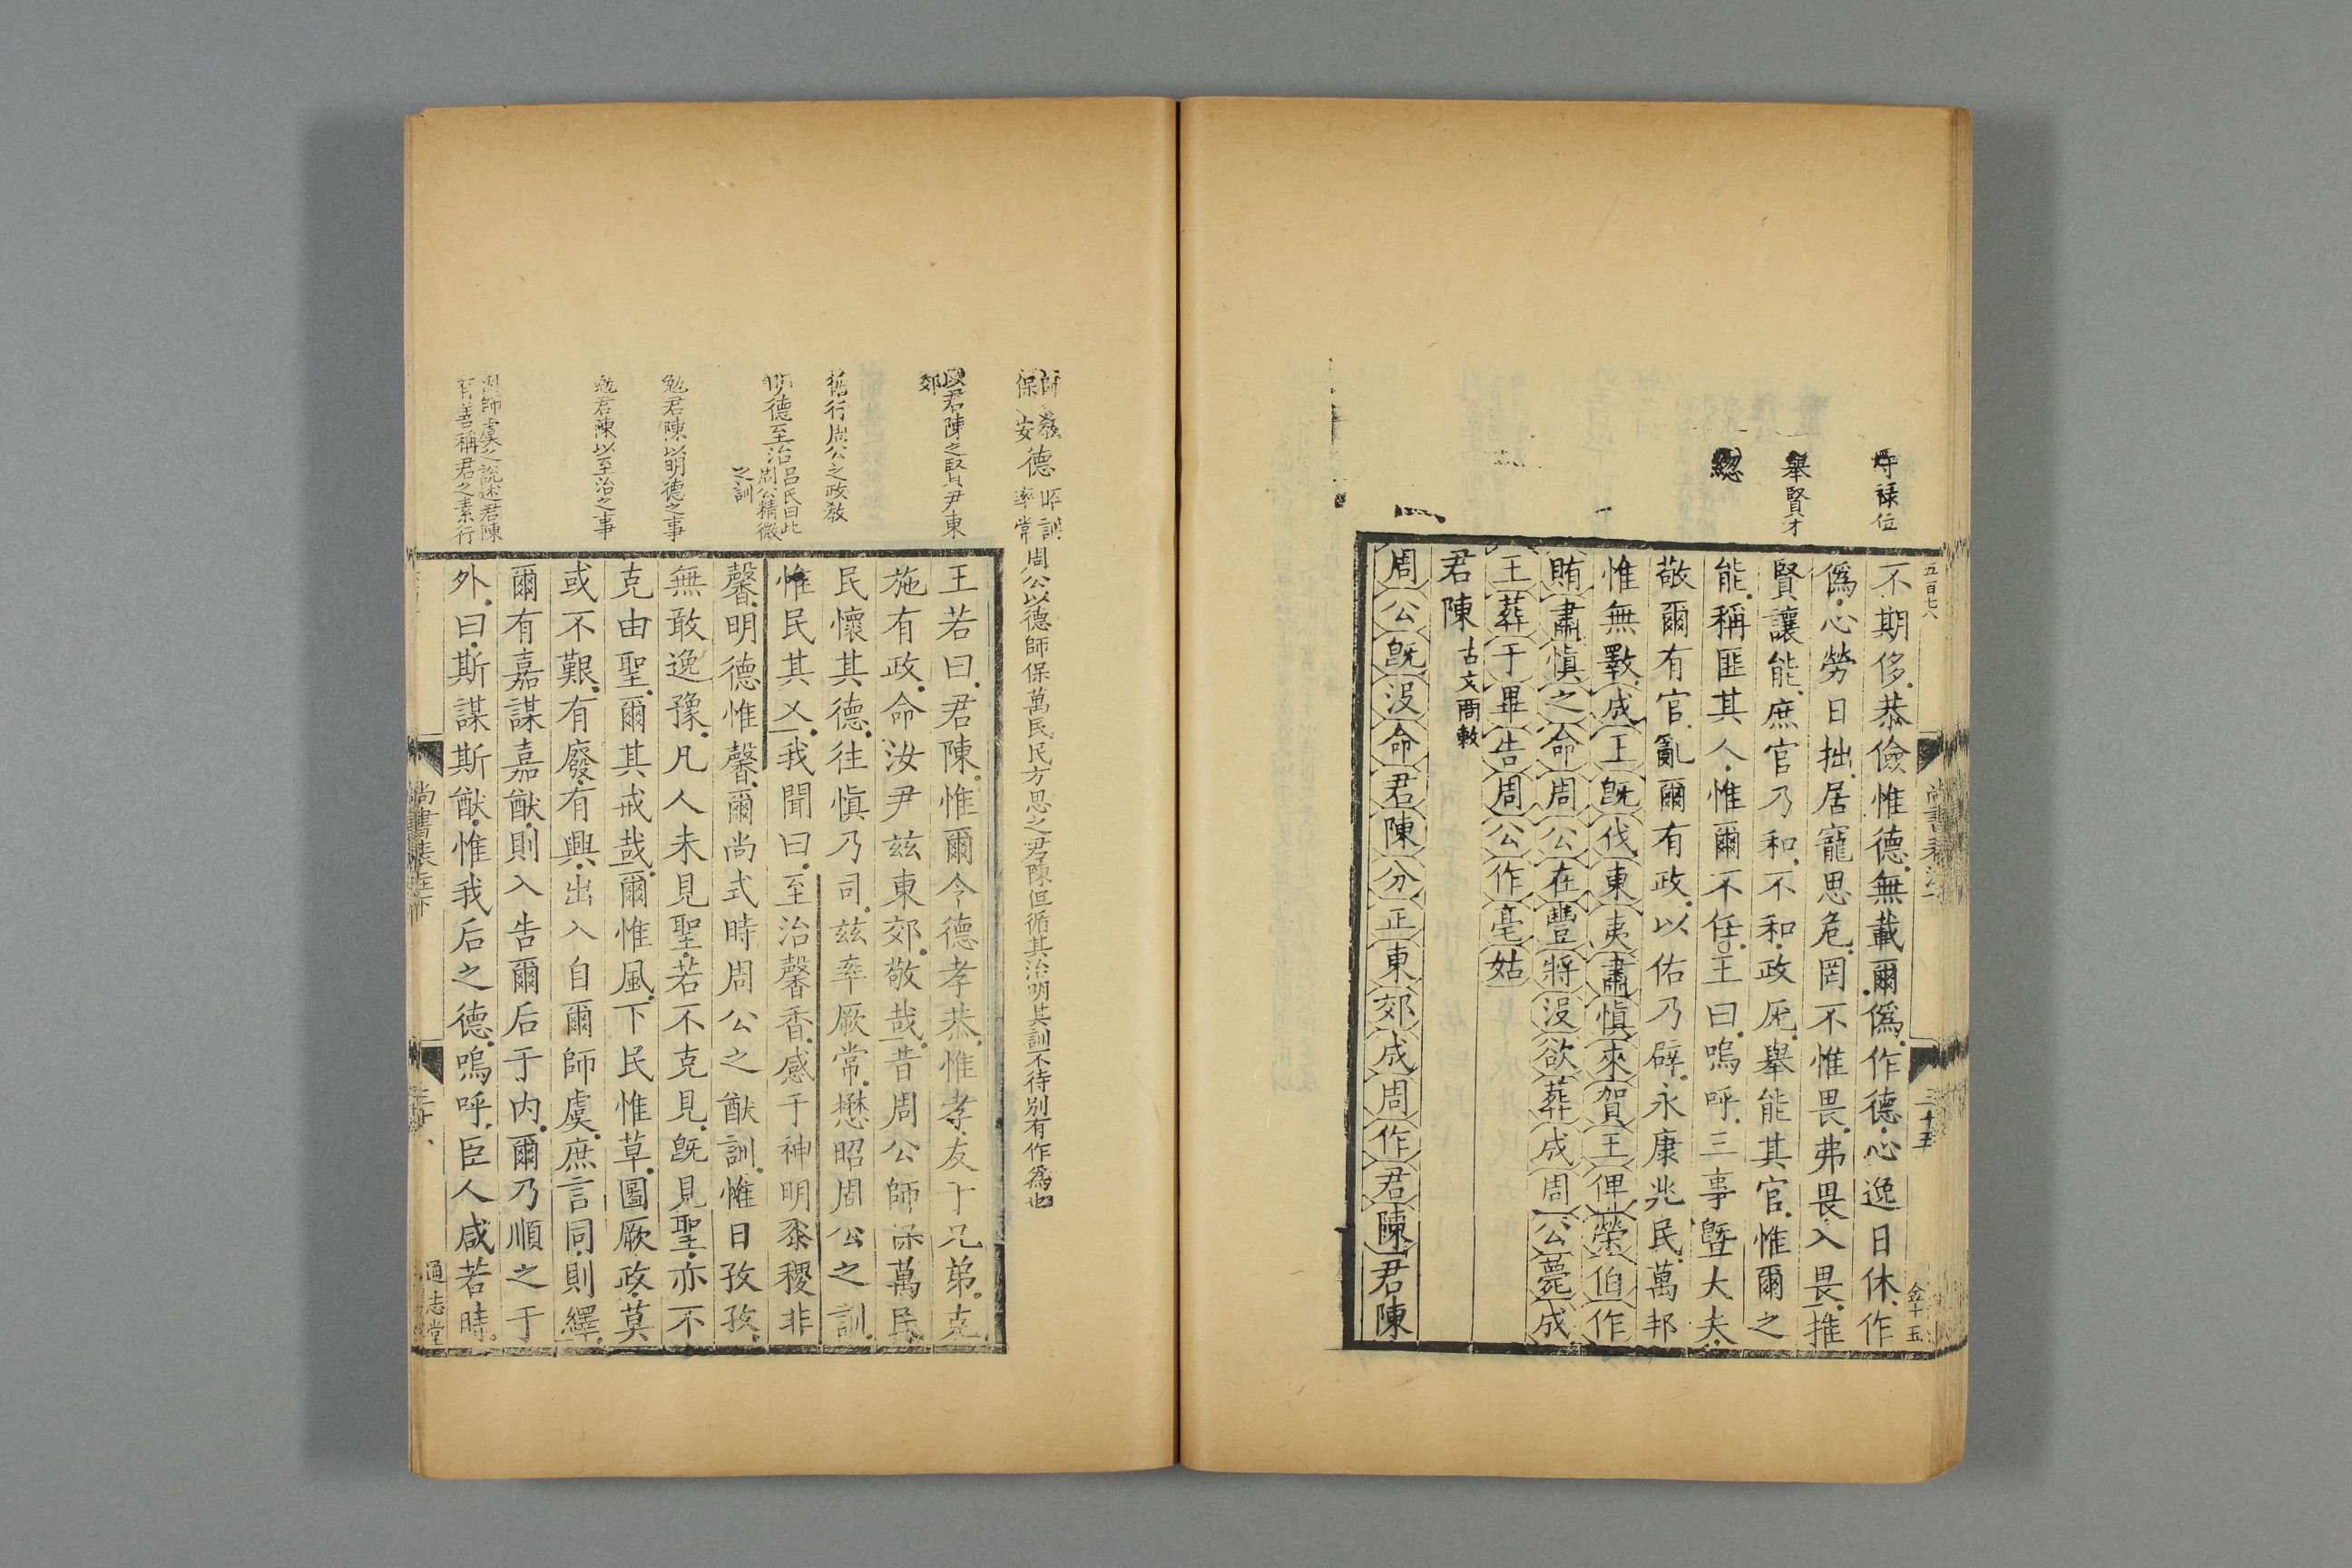 五百七六
尚書表注下
三十五
金十五
守祿位
舉賢才
總
不期侈恭儉惟德無載爾僞作德心逸日休作
僞心勞日拙居寵思危罔不惟畏弗畏入畏推
賢讓能庶官乃和不和政厖舉能其官惟爾之
能稱匪其人惟爾不任王曰嗚呼三事暨大夫
敬爾有官亂爾有政以佑乃辟永康兆民萬邦
惟無斁成王旣伐東夷肅愼來賀王俾榮伯作
賄肅愼之命周公在豐將沒欲葬成周公薨成
王葬于畢告周公作亳姑
君陳古文商敕
周公旣沒命君陳分正東郊成周作君陳君陳
師教德昭訓
保安率常
周公以德師保萬民民方思之君陳但循其治明其訓不待別有作爲也
段君陳之賢尹東
郊
舊行周公之政教
明德至治呂氏曰此
周公精微
之訓
勉君陳以明德之事
勉君陳以至治之事
因師虞之說述君陳
有善稱君之素行
王若曰君陳惟爾令德孝恭惟孝友于兄弟克
施有政命汝尹茲東郊敬哉昔周公師保萬民
民懷其德往愼乃司茲率厥常懋昭周公之訓
惟民其乂我聞曰至治馨香感于神明黍稷非
馨明德惟馨爾尚式時周公之猷訓惟日孜孜
無敢逸豫凡人未見聖若不克見旣見聖亦不
克由聖爾其戒哉爾惟風下民惟草圖厥政莫
或不艱有廢有興出入自爾師虞庶言同則繹
爾有嘉謀嘉猷則入告爾后于內爾乃順之于
外曰斯謀斯猷惟我后之德嗚呼臣人咸若時
尚書表注下
通志堂